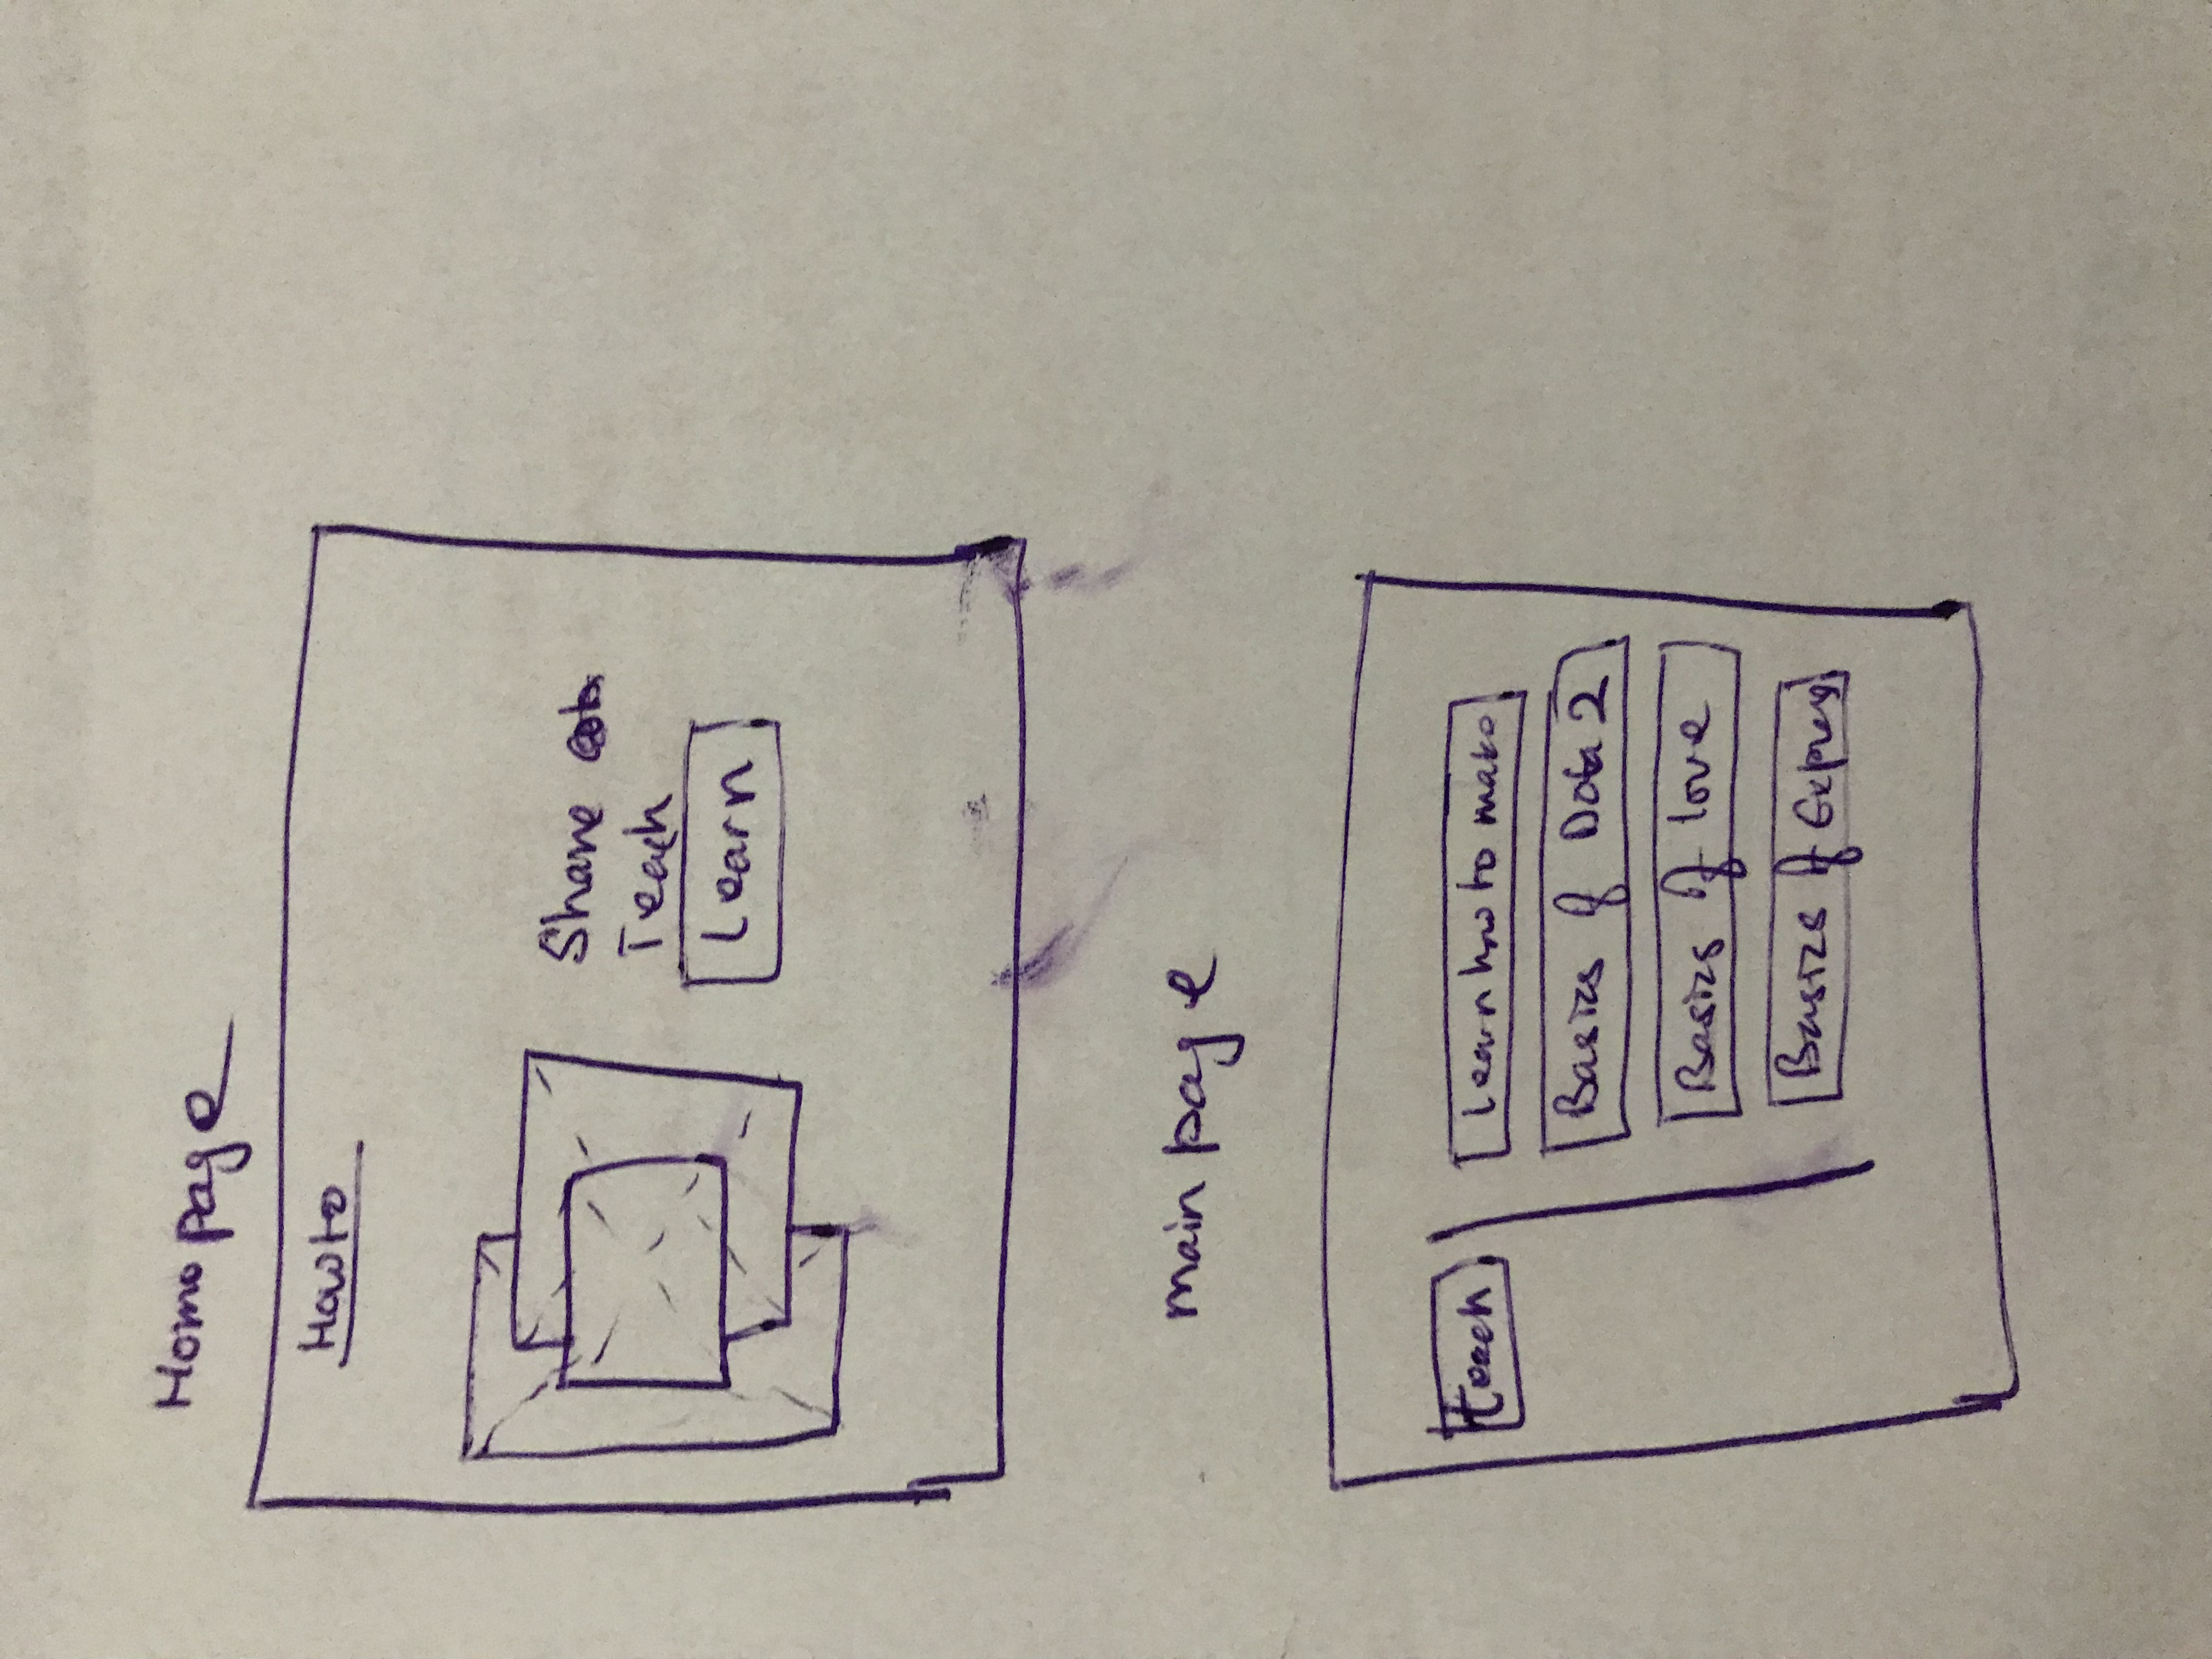 Home page
Howto
Share
Teach
Learn
main page
teach
Learn how to make
Basics of Dota 2
Basics of love
Basics of Express